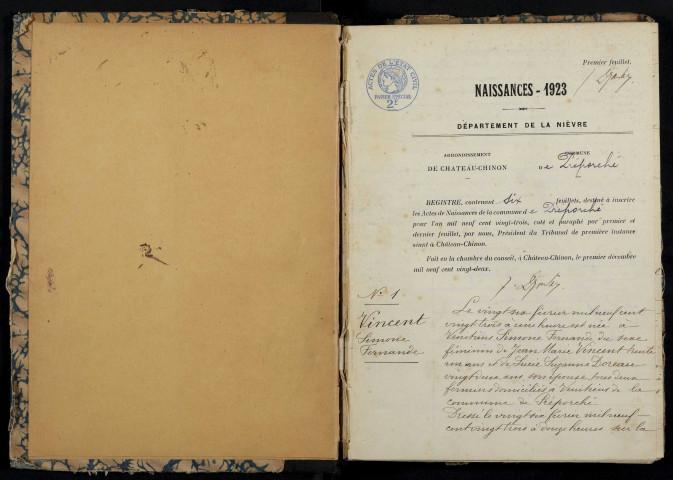 Premier feuillet.
ACTES DE L'ÉTAT CIVIL
PAPIER SPÉCIAL
2F
NAISSANCES - 1923
DÉPARTEMENT DE LA NIÈVRE
ARRONDISSEMENT
DE CHATEAU-CHINON
COMMUNE
De Préporché
REGISTRE, contenant six feuillets, destiné à inscrire
les Actes de Naissances de la commune de Préporché
pour l'an mil neuf cent vingt-trois, coté et paraphé par premier et
dernier feuillet, par nous, Président du Tribunal de première instance
séant à Château-Chinon.
Fait en la chambre du conseil, à Château-Chinon, le premier décembre
mil neuf cent vingt-deux.
N° 1
Vincent
Simone
Fernande
Le vingt six février mil neuf cent
vingt trois à une heure est née à
Simone Fernande du sexe
féminin de Jean Marie Vincent trente
ans et de Lucie Suzanne
vingt deux ans son épouse tous deux
fermiers domiciliés à de la
commune de Préporché
Dressé le vingt six février mil neuf
cent vingt trois à onze heures sur la